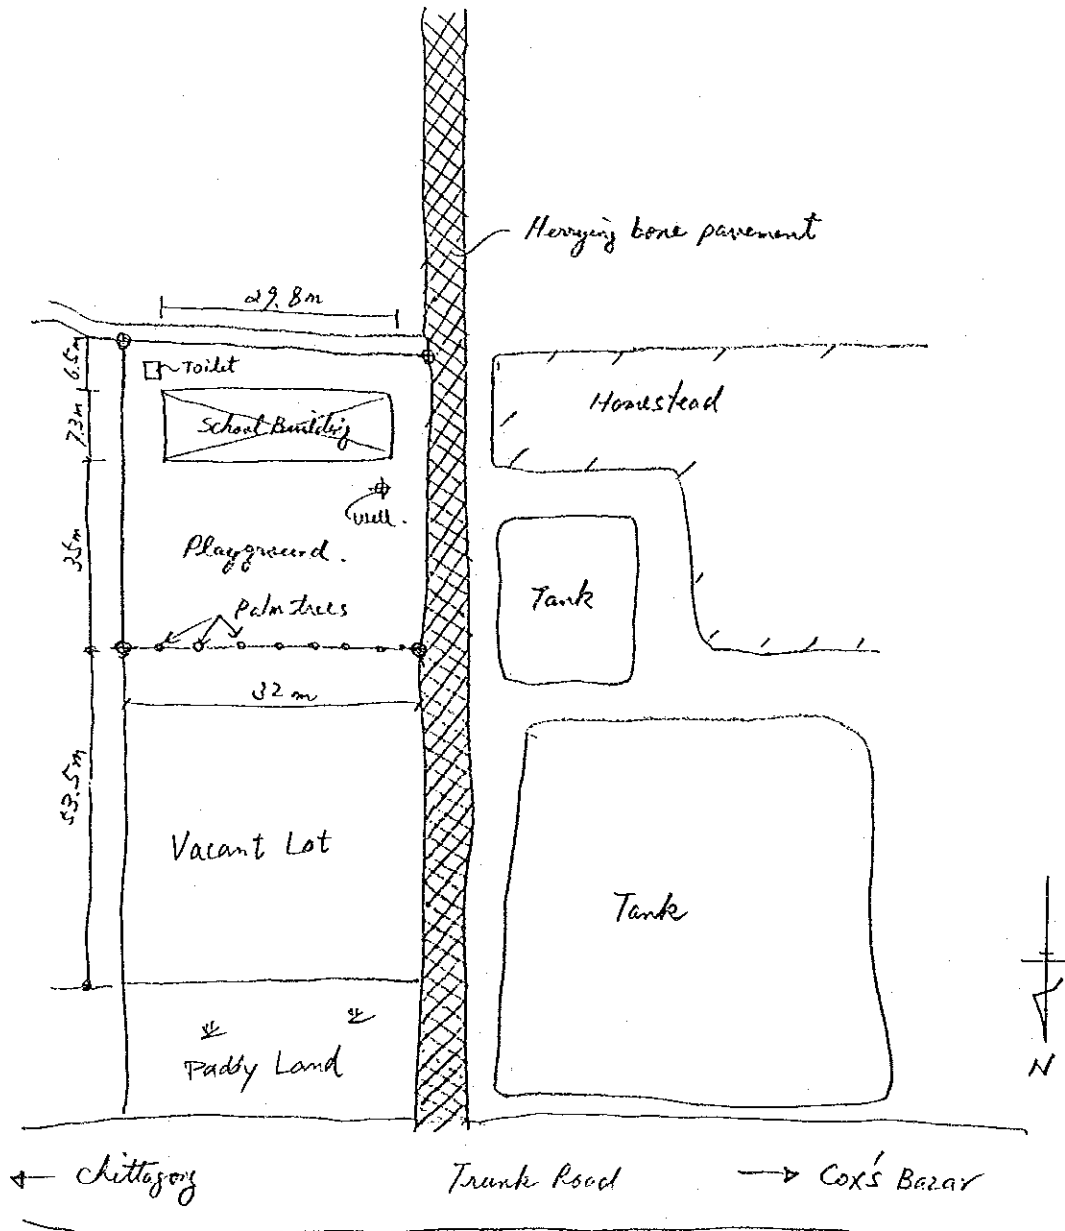 Herrying bone pavement
29.8m
6.5m
Toilet
Homestead
7.3m
School Building
well.
35m
Playground.
Tank
Palm trees
32 m
53.5m
Vacant Lot
Tank
Paddy Land
N
Chittagong
Trunk Road
Cox's Bazar